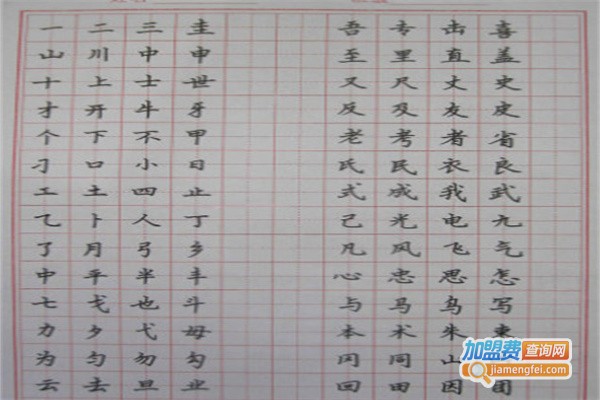 一 二 三 圭 吾 专 击 喜
山 川 中 申 至 里 直 盖
十 上 士 世 又 尺 丈 史
才 开 牛 牙 反 及 友 皮
个 下 不 甲 老 考 者 省
刁 口 小 日 氏 民 衣 良
工 土 四 止 式 成 我 武
乙 卜 人 丁 己 光 电 九
了 月 弓 乡 凡 风 飞 气
中 平 半 丰 心 忠 思 怎
七 戈 也 斗 与 马 鸟 写
力 夕 弋 母 本 术 朱 東
为 勺 勿 勾 冈 同 山
云 去 旦 业 回 田 因 团
加盟费查询网
jiamengfei.com